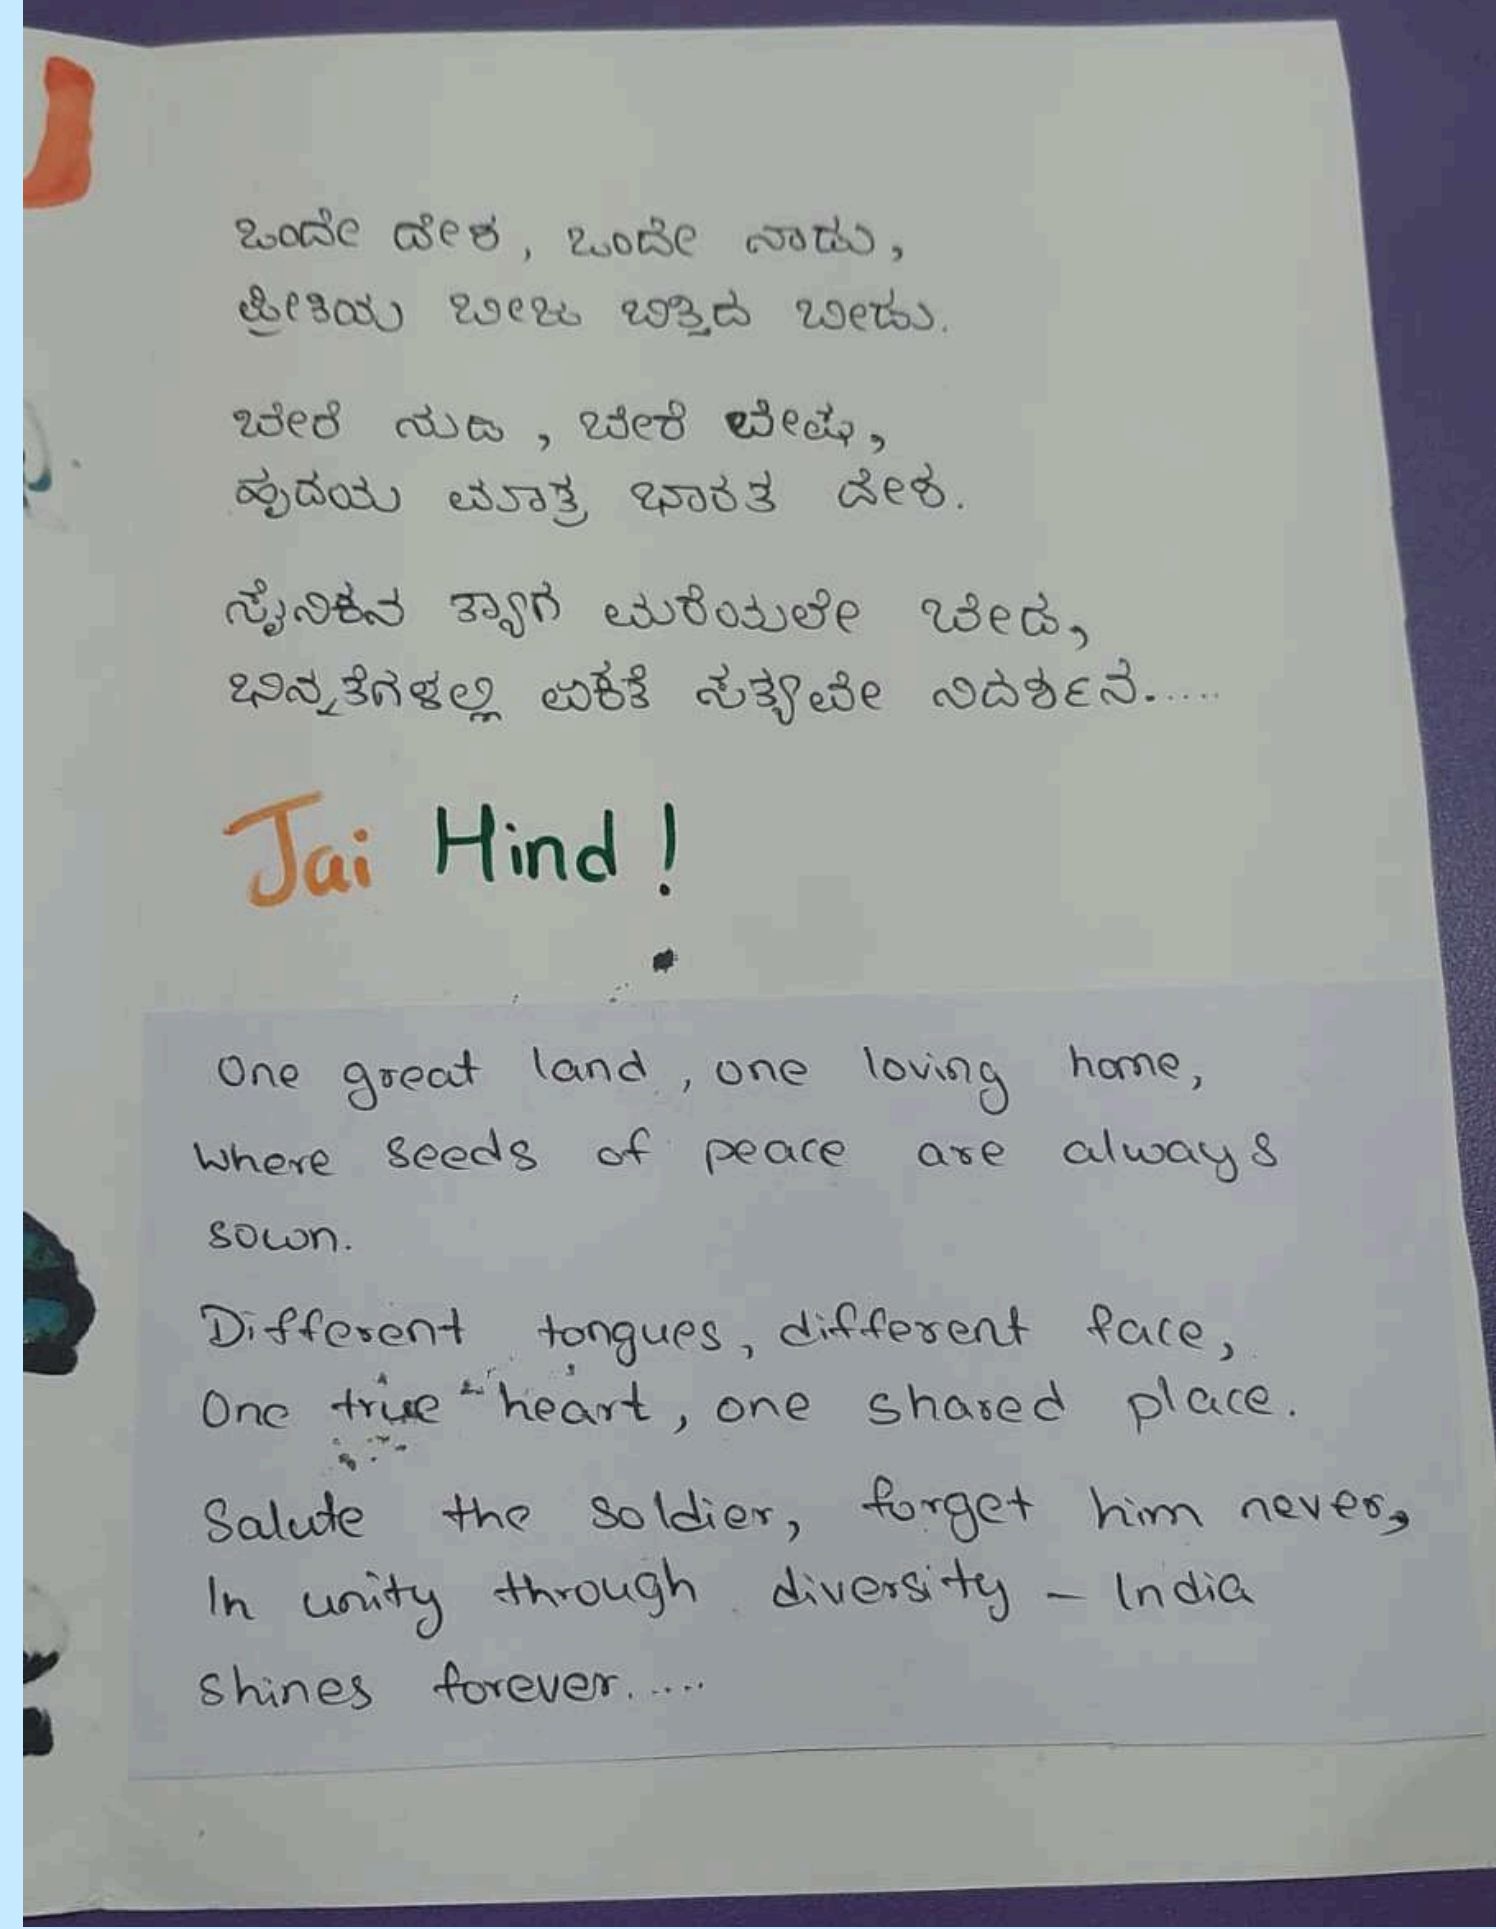 ಒಂದೇ ದೇಶ, ಒಂದೇ ನಾಡು,
ಪ್ರೀತಿಯ ಬೀಜ ಬಿತ್ತಿದ ಬೀಡು.
ಬೇರೆ ನುಡಿ, ಬೇರೆ ವೇಷ,
ಹೃದಯ ಮಾತ್ರ ಭಾರತ ದೇಶ.
ಸೈನಿಕನ ತ್ಯಾಗ ಮರೆಯಲೇ ಬೇಡ,
ಭಿನ್ನತೆಗಳಲ್ಲಿ ಏಕತೆ ಸತ್ಯವೇ ನಿದರ್ಶನ.....
Jai Hind!
One great land, one loving home,
Where seeds of peace are always
sown.
Different tongues, different face,
One true heart, one shared place.
Salute the soldier, forget him never,
In unity through diversity - India
shines forever.....